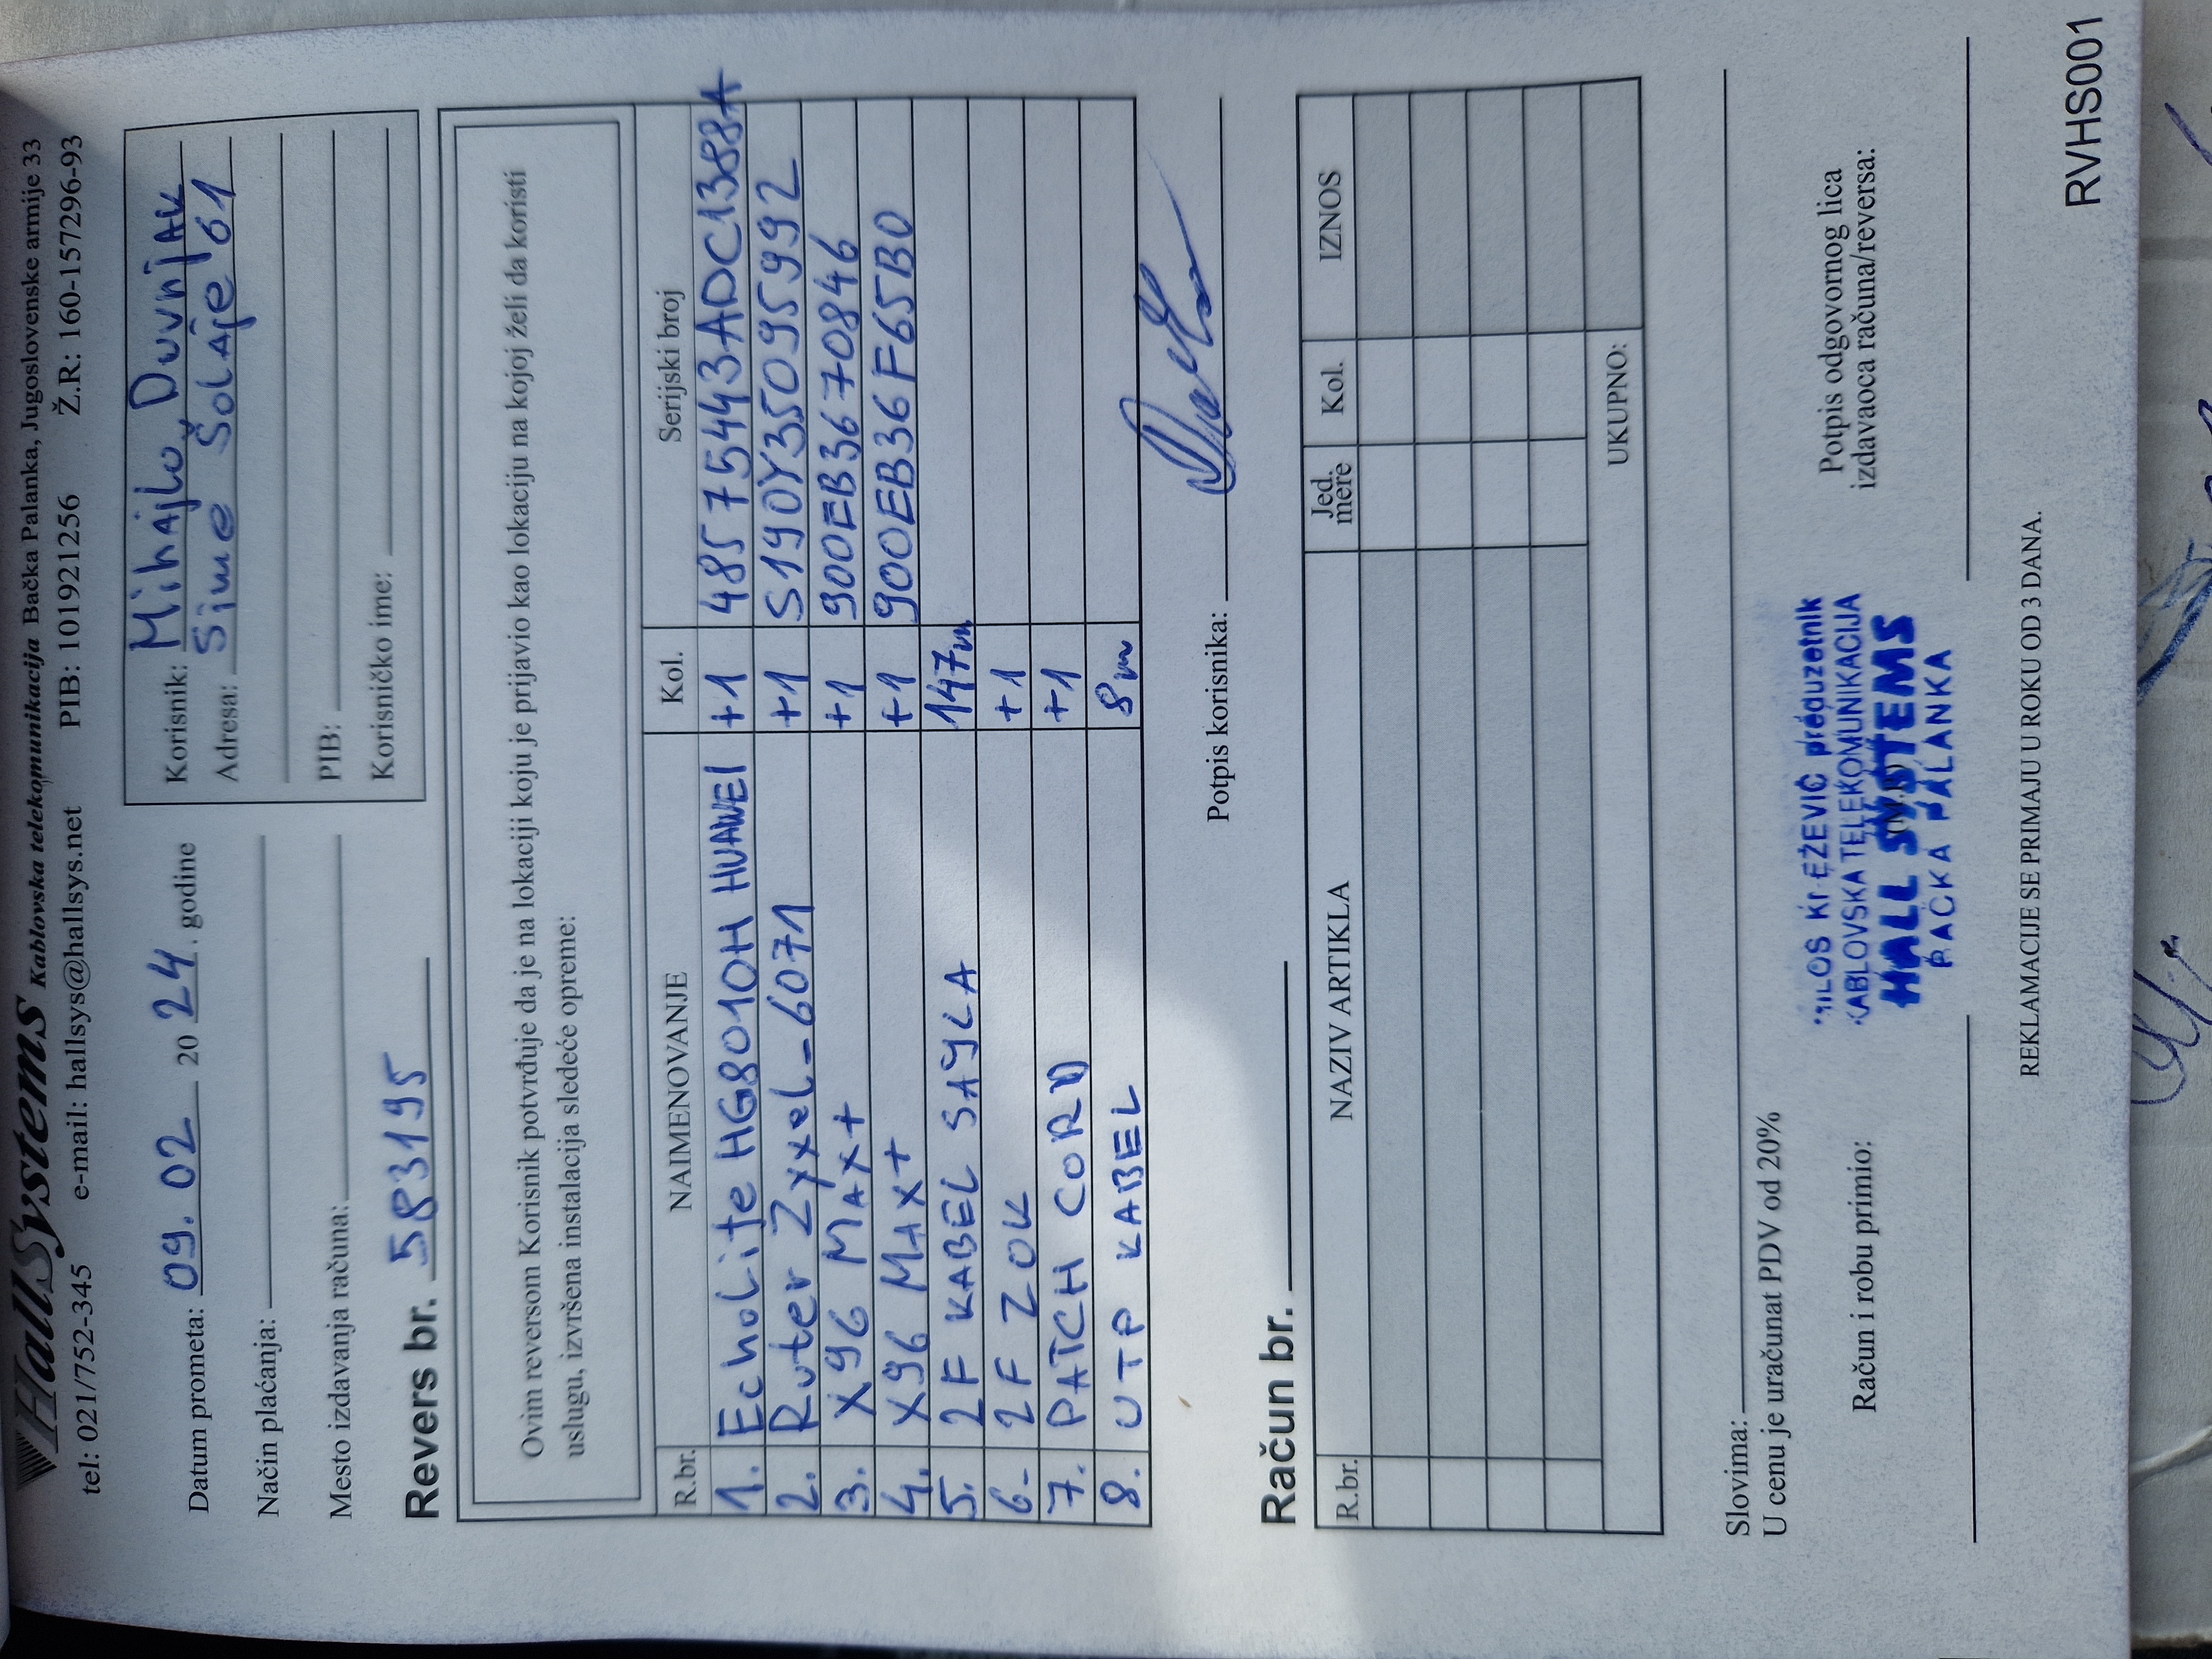 HallSystems Kablovska telekomunikacija Bačka Palanka, Jugoslovenske armije 33
tel: 021/752-345 e-mail: hallsys@hallsys.net PIB: 101921256 Ž.R: 160-157296-93
Datum prometa: 09. 02 20 24. godine
Način plaćanja:
Mesto izdavanja računa:
Korisnik: Mihajlo Duvnjak
Adresa: Sime Šolaje 61
PIB:
Korisničko ime:
Revers br. 583195
Ovim reversom Korisnik potvrđuje da je na lokaciji koju je prijavio kao lokaciju na kojoj želi da koristi
uslugu, izvršena instalacija sledeće opreme:
R.br. NAIMENOVANJE Kol. Serijski broj
1. EchoLife HG8010H HUAWEI +1 48575443ADC1388A
2. Ruter Zyxel_6071 +1 S190Y35095992
3. X96 MAX+ +1 900EB3670846
4. X96 MAX+ +1 900EB36F65B0
5. 2F KABEL SAJLA 147m
6. 2F ZOK +1
7. PATCH CORD +1
8. UTP KABEL 8m
Potpis korisnika:
Račun br.
R.br. NAZIV ARTIKLA Jed. mere Kol. IZNOS
UKUPNO:
Slovima:
U cenu je uračunat PDV od 20%
Račun i robu primio:
MILOS KNEŽEVIĆ preduzetnik
KABLOVSKA TELEKOMUNIKACIJA
HALL SYSTEMS
BAČKA PALANKA
Potpis odgovornog lica
izdavaoca računa/reversa:
REKLAMACIJE SE PRIMAJU U ROKU OD 3 DANA.
RVHS001